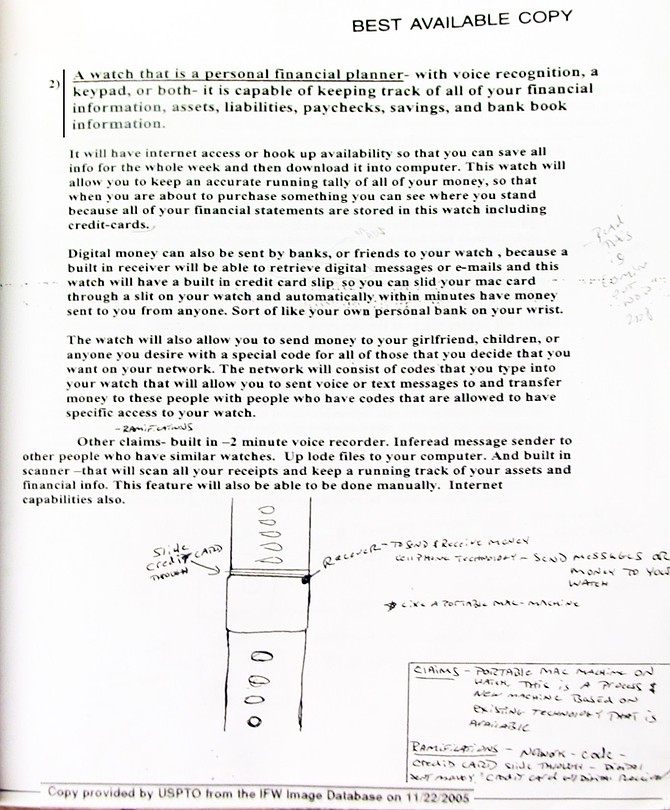 BEST AVAILABLE COPY
2) A watch that is a personal financial planner- with voice recognition, a
keypad, or both- it is capable of keeping track of all of your financial
information, assets, liabilities, paychecks, savings, and bank book
information.
It will have internet access or hook up availability so that you can save all
info for the whole week and then download it into computer. This watch will
allow you to keep an accurate running tally of all of your money, so that
when you are about to purchase something you can see where you stand
because all of your financial statements are stored in this watch including
credit-cards.
Digital money can also be sent by banks, or friends to your watch , because a
built in receiver will be able to retrieve digital messages or e-mails and this
watch will have a built in credit card slip so you can slid your mac card
through a slit on your watch and automatically within minutes have money
sent to you from anyone. Sort of like your own personal bank on your wrist.
The watch will also allow you to send money to your girlfriend, children, or
anyone you desire with a special code for all of those that you decide that you
want on your network. The network will consist of codes that you type into
your watch that will allow you to sent voice or text messages to and transfer
money to these people with people who have codes that are allowed to have
specific access to your watch.
-RAMIFICATIONS
Other claims- built in –2 minute voice recorder. Inferead message sender to
other people who have similar watches. Up lode files to your computer. And built in
scanner –that will scan all your receipts and keep a running track of your assets and
financial info. This feature will also be able to be done manually. Internet
capabilities also.
Slide
credit CARD
THROUGH
RECEIVER - TO SEND & RECEIVE MONEY
CELLPHONE TECHNOLOGY - SEND MESSAGES OR
MONEY TO YOUR
WATCH
LIKE A PORTABLE MAC-MACHINE
CLAIMS - PORTABLE MAC MACHINE ON
WATCH THIS IS A PROCESS &
NEW MACHINE BASED ON
EXISTING TECHNOLOGY THAT IS
AVAILABLE
RAMIFICATIONS - NETWORK - CODE -
CREDIT CARD SLIDE THROUGH - DIGITAL
SENT MONEY CREDIT CARD
Copy provided by USPTO from the IFW Image Database on 11/22/2005